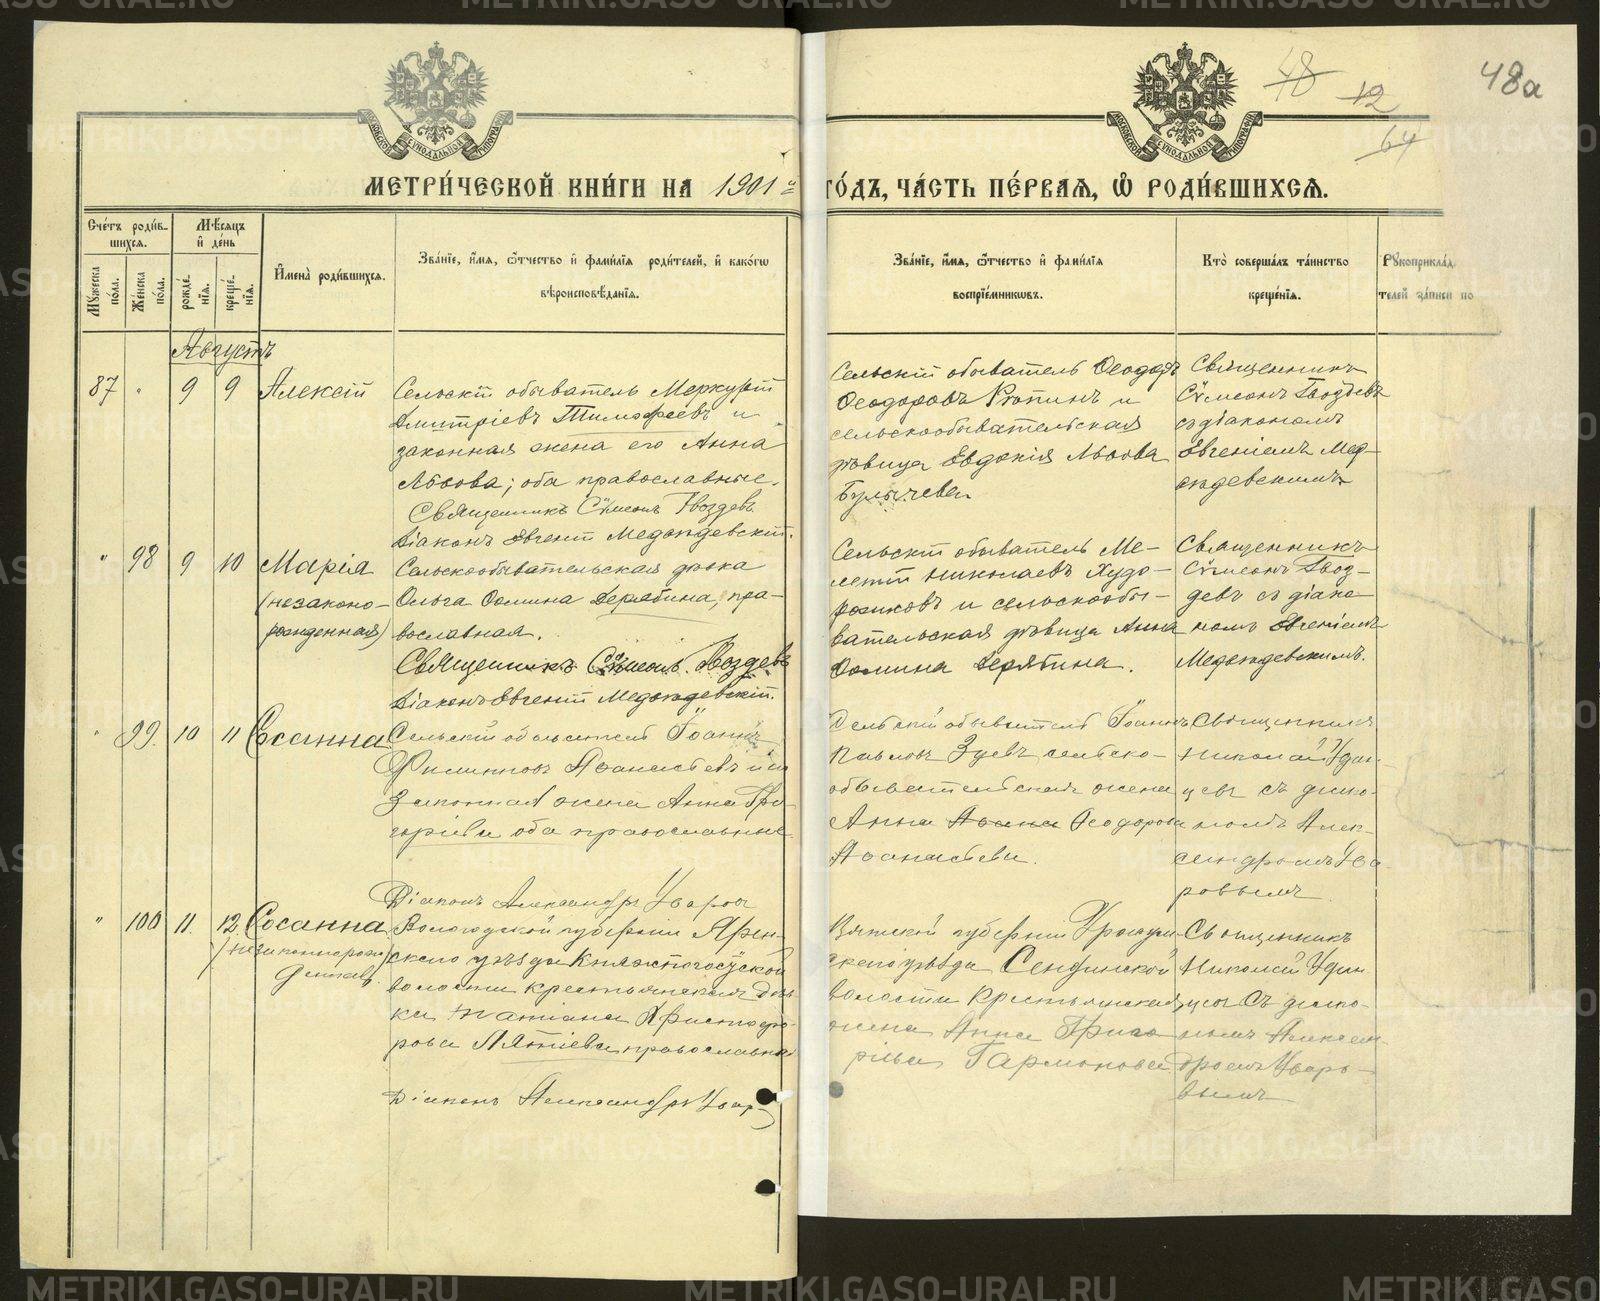 48 12 48а
64
МЕТРИ́ЧЕСКОЙ КНИ́ГИ НА 1901й ГО́ДЪ, ЧА́СТЬ ПЕ́РВАЯ, Ѡ҆ РОДИ́ВШИХСѦ.
Сче́тъ роди́в-
шихсѧ.
Мѣ́сяцъ
и҆ де́нь
Мꙋ́жеска по́ла.
Же́нска по́ла.
рожде́-
нїѧ.
креще́-
нїѧ.
И҆мена̀ роди́вшихсѧ.
Зва́нїе, и҆́мѧ, ѻ҆́тчество и҆ фами́лїѧ роди́телей, и҆ како́гѡ
вѣроисповѣ́данїѧ.
Зва́нїе, и҆́мѧ, ѻ҆́тчество и҆ фами́лїѧ
воспрїе́мникѡвъ.
Кто̀ соверша́лъ та́инство
креще́нїѧ.
Рꙋкоприкла́д
телей за́писи по
Августъ
87 " 9 9 Алексій
Сельскій обыватель Меркурій
Дмитріевъ Тимофеевъ и
законная жена его Анна
Львова; оба православные.
Священникъ Сѵмеонъ Гвоздевъ
Діаконъ Евгеній Медвѣдевскій.
Сельскій обыватель Ѳеодоръ
Ѳеодоровъ и
сельскообывательская
дѣвица Евдокія Львова
Булычева.
Священникъ
Сѵмеонъ Гвоздевъ
съ діакономъ
Евгеніемъ Мед-
вѣдевскимъ
" 98 9 10 Марія
(незаконо-
рожденная)
Сельскообывательская дѣвка
Ольга Ѳомина Дерябина, пра-
вославная.
Священникъ Сѵмеонъ Гвоздевъ
Діаконъ Евгеній Медвѣдевскій.
Сельскій обыватель Ме-
летій Николаевъ Худо-
рожковъ и сельскообы-
вательская дѣвица Анна
Ѳомина Дерябина.
Священникъ
Сѵмеонъ Гвоз-
девъ съ діако-
номъ Евгеніемъ
Медвѣдевскимъ.
" 99. 10 11 Сосанна
Сельскій обыватель Іоаннъ
Филипповъ Аѳанасьевъ и
Законная жена Анна Гри-
горіева оба православные
Діаконъ Александръ Уваровъ
Сельскій обыватель Іоаннъ
Павловъ Зуевъ сельско-
обывательская жена
Анна Ѳеодорова
Аѳанасьева.
Священникъ
Николай Удин-
цевъ съ діако-
номъ Алек-
сандромъ Ува-
ровымъ
" 100 11. 12 Сосанна
(незаконнорож-
денная)
Вологодской губерніи Ярен-
скаго уѣзда Княжпогостской
волости крестьянская дѣв-
ка Татіана Христофо-
рова православная
Діаконъ Александръ Уваровъ
Вятской губерніи Уржум-
скаго уѣзда Сендинской
волости крестьянская
жена Анна Григо-
рьева Гармонова
Священникъ
Николай Удин-
цевъ съ діако-
номъ Алексан-
дромъ Уваро-
вымъ
METRIKI.GASO-URAL.RU